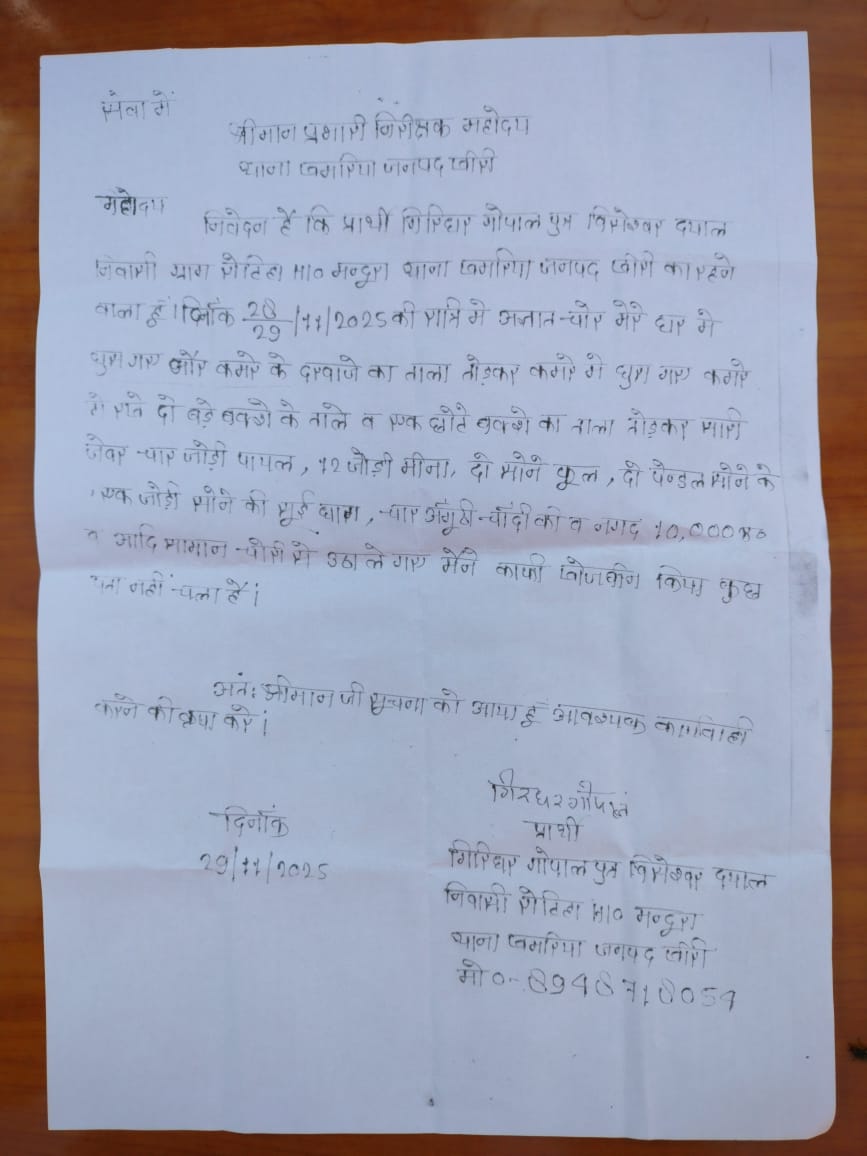 सेवा में
श्रीमान प्रभारी निरीक्षक महोदय
थाना खमरिया जनपद खीरी
महोदय
निवेदन है कि प्रार्थी गिरिधर गोपाल पुत्र विसेश्वर दयाल
निवासी ग्राम सेठिहा म० मन्दूरा थाना खमरिया जनपद खीरी का रहने
वाला हूँ। दिनाँक 28/29/11/2025 की रात्रि मे अज्ञात चोर मेरे घर मे
घुस गए और कमरे के दरवाजे का ताला तोड़कर कमरे मे घुस गए कमरे
मे रखे दो बड़े बक्शे के ताले व एक छोटे बक्शे का ताला तोड़कर सारी
जेवर चार जोड़ी पायल, 12 जोड़ी मीना, दो सोने फूल, दो पेन्डल सोने के
एक जोड़ी सोने की सुई धागा, चार अँगूठी चाँदी की व नगद 10,000 रू०
आदि सामान चोरी से उठा ले गए मैने काफी खोजबीन किया कुछ
पता नहीं चला है।
अतः श्रीमान जी सूचना को आया हूँ आवश्यक कार्यवाही
करने की कृपा करें।
गिरधर गोपाल
प्रार्थी
दिनाँक
29/11/2025
गिरिधर गोपाल पुत्र विसेश्वर दयाल
निवासी सेठिहा म० मन्दूरा
थाना खमरिया जनपद खीरी
मो०-8948718054